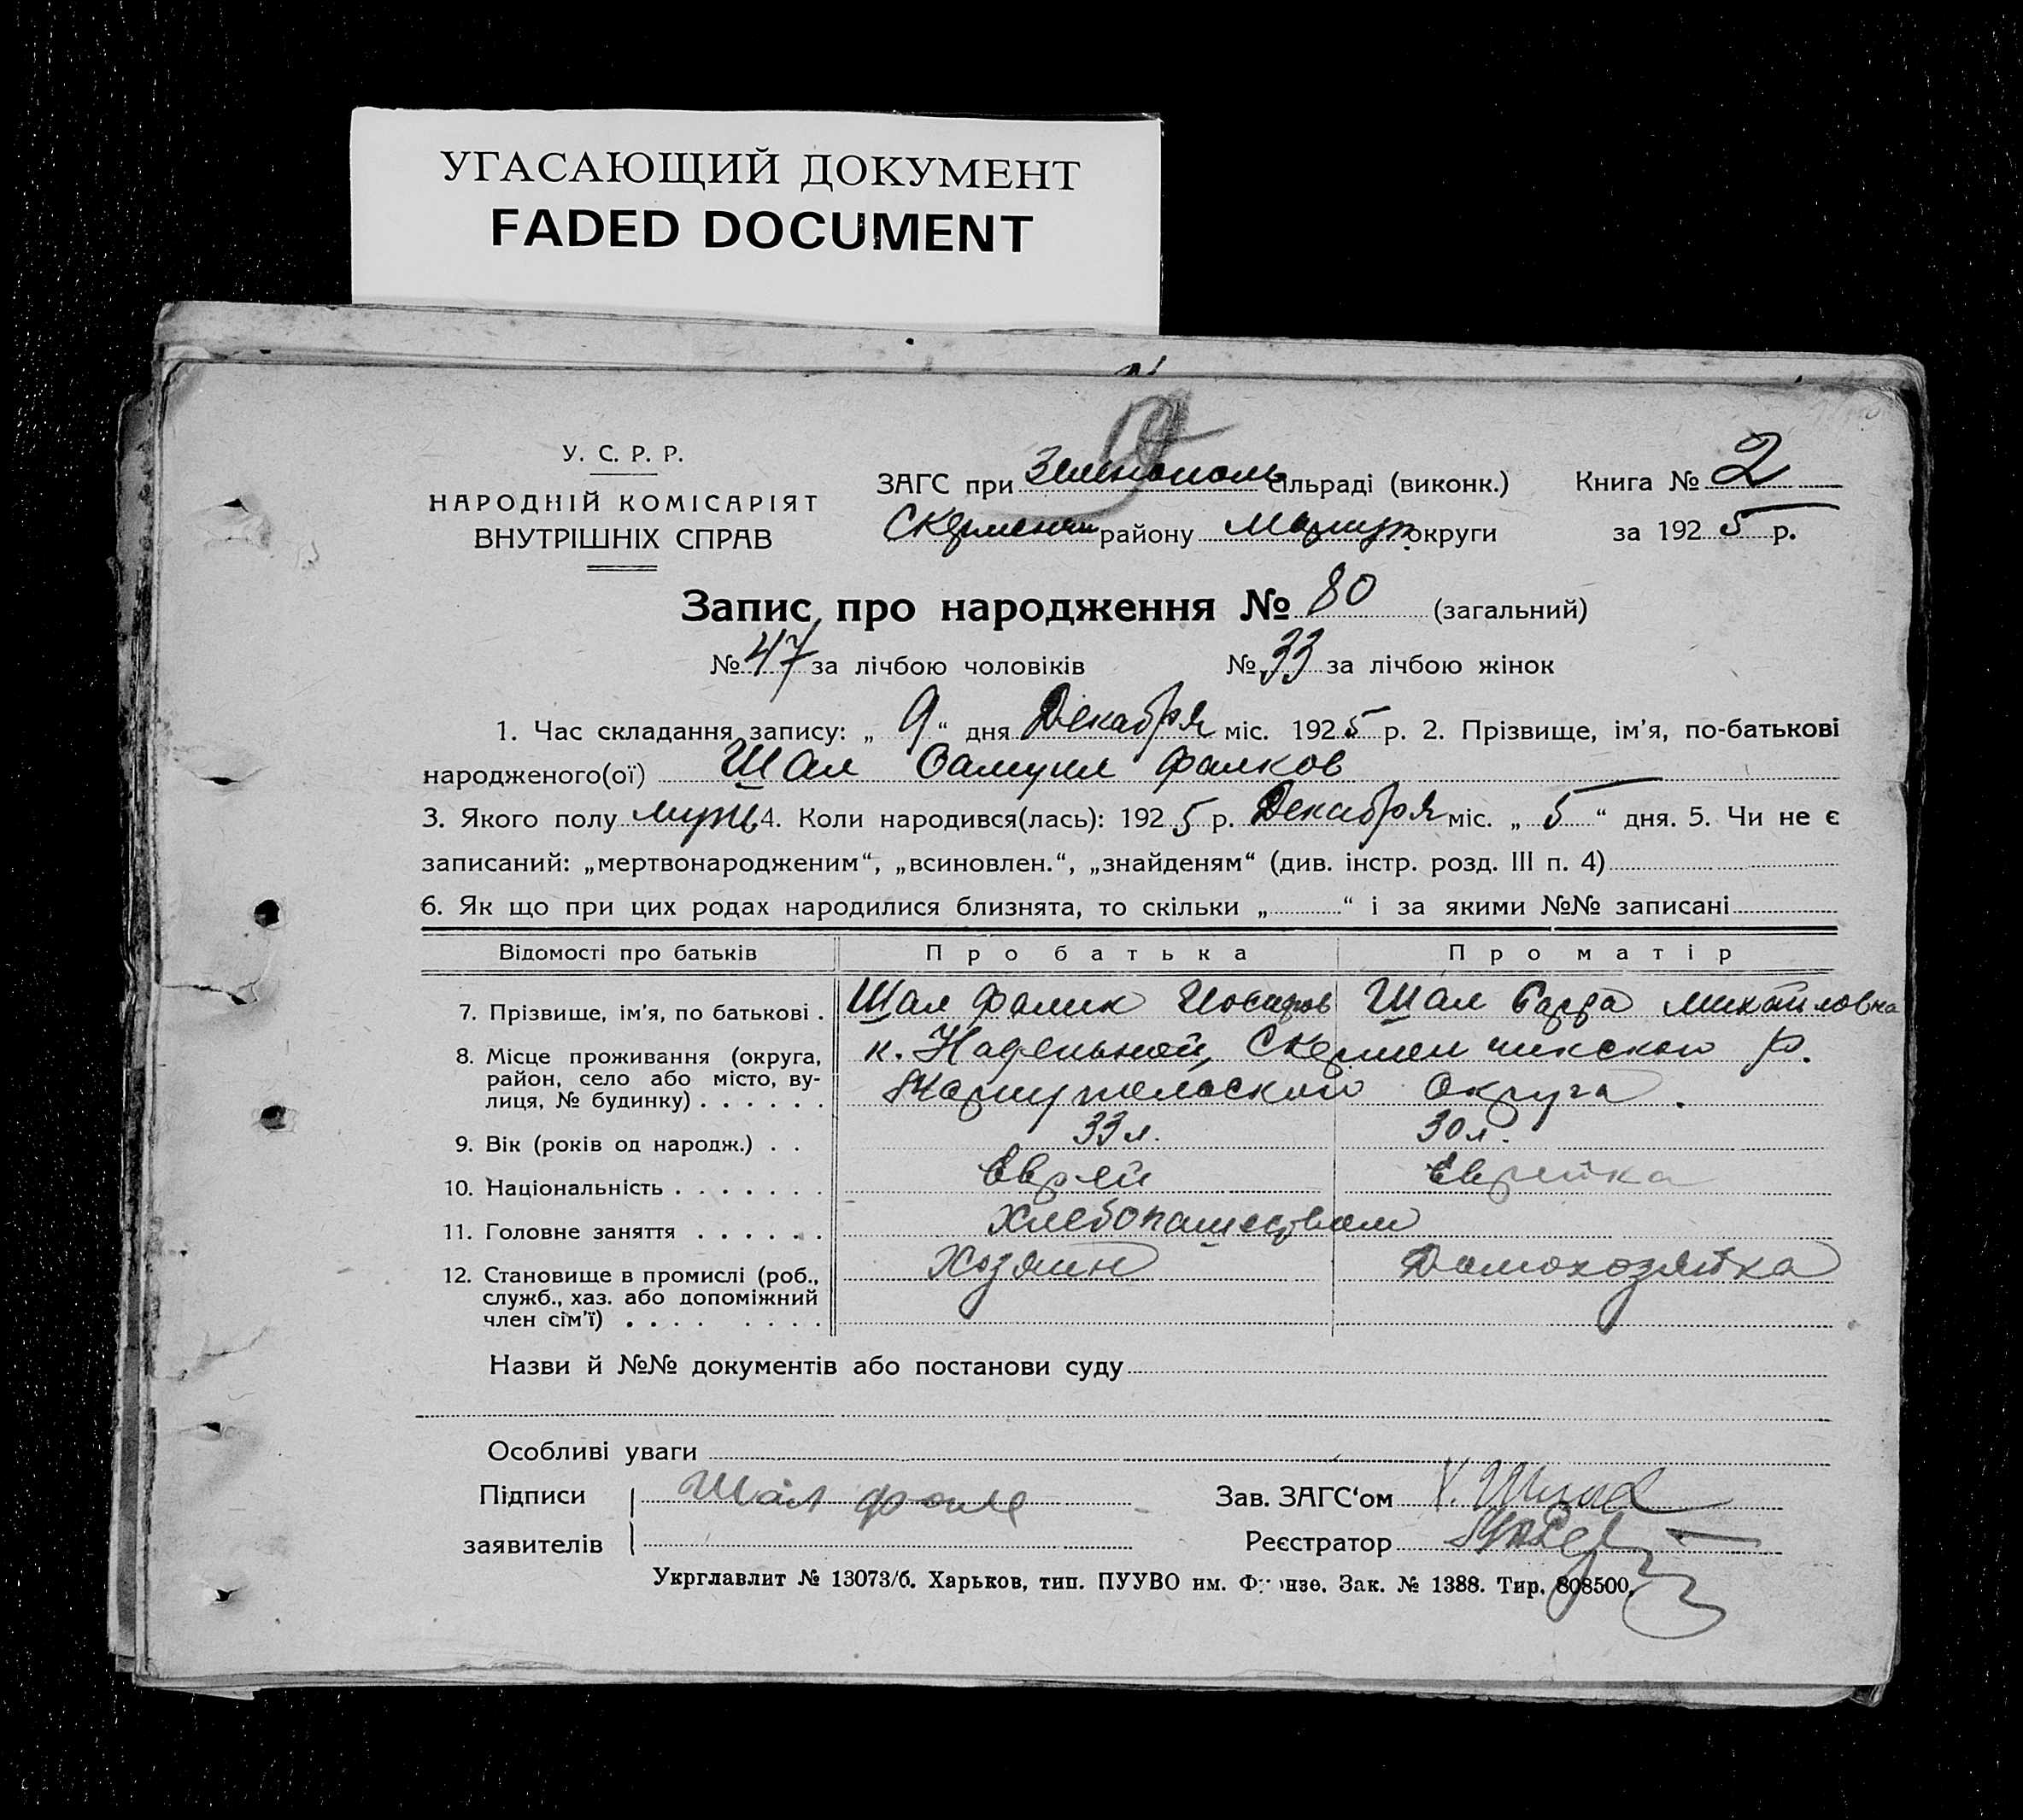 УГАСАЮЩИЙ ДОКУМЕНТ
FADED DOCUMENT
У. С. Р. Р.
НАРОДНІЙ КОМІСАРІЯТ
ВНУТРІШНІХ СПРАВ
ЗАГС при Зеленополь сільраді (виконк.)
Скермен району Мариуп. округи
Книга № 2
за 1925 р.
Запис про народження № 80 (загальний)
№ 47 за лічбою чоловіків № 33 за лічбою жінок
1. Час складання запису: „ 9 “ дня Декабря міс. 1925 р. 2. Прізвище, ім’я, по-батькові
народженого(ої) Шал Самуил Фалков
3. Якого полу мужс 4. Коли народився(лась): 1925 р. Декабря міс. „ 5 “ дня. 5. Чи не є
записаний: „мертвонародженим“, „всиновлен.“, „знайденям“ (див. інстр. розд. III п. 4)
6. Як що при цих родах народилися близнята, то скільки „ “ і за якими №№ записані
Відомості про батьків Про батька Про матір
7. Прізвище, ім’я, по батькові . Шал Фалик Иосифов Шал Михайловна
8. Місце проживання (округа, район, село або місто, вулиця, № будинку) . . . . . . к. Наденьной, Скерменчикского р.
Мариупольской Округа.
9. Вік (років од народж.) . . 33 л. 30 л.
10. Національність . . . . . . . Еврей Еврейка
11. Головне заняття . . . . . . Хлебопашеством
12. Становище в промислі (роб., Хозяин Домохозяйка
служб., хаз. або допоміжний
член сім’ї) . . . . . . . .
Назви й №№ документів або постанови суду
Особливі уваги
Підписи Шал Фале Зав. ЗАГС‘ом
заявителів Реєстратор
Укрглавлит № 13073/б. Харьков, тип. ПУУВО им. Фрунзе. Зак. № 1388. Тир. 808500.